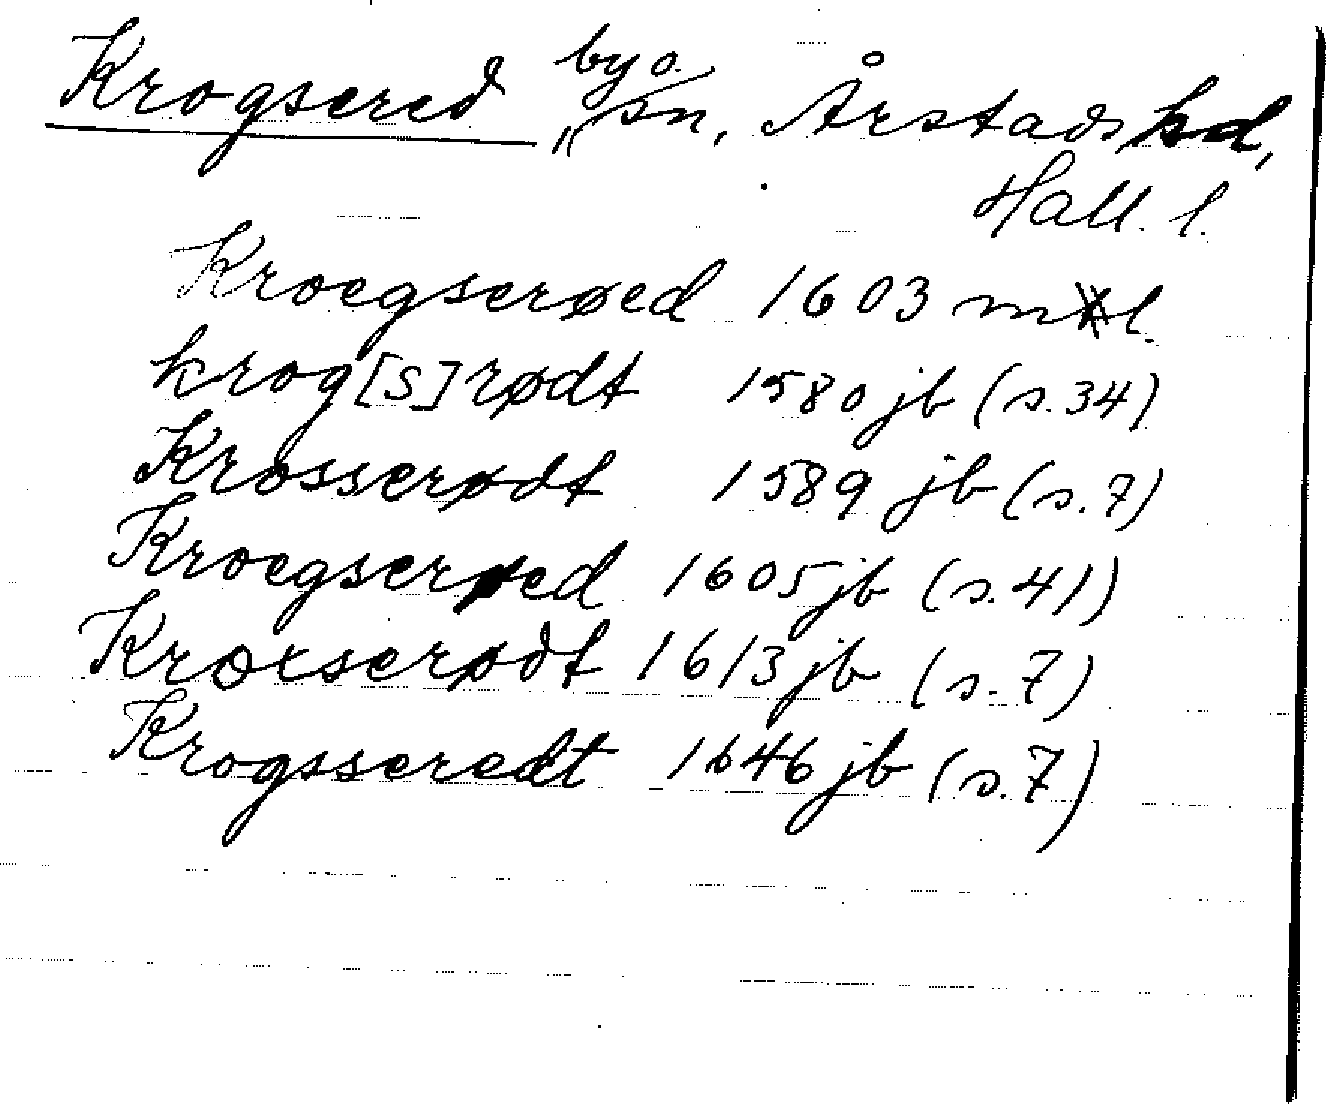 Krogsered, by o. sn, Årstads hd,
Hall. l.
Kroegserøed 1603 ml.
krog[s]rødt 1580 jb (s. 34)
Krosserødt 1589 jb (s. 7)
Kroegserøed 1605 jb (s. 41)
Krorserødt 1613 jb (s. 7)
Krogsseredt 1646 jb (s. 7)